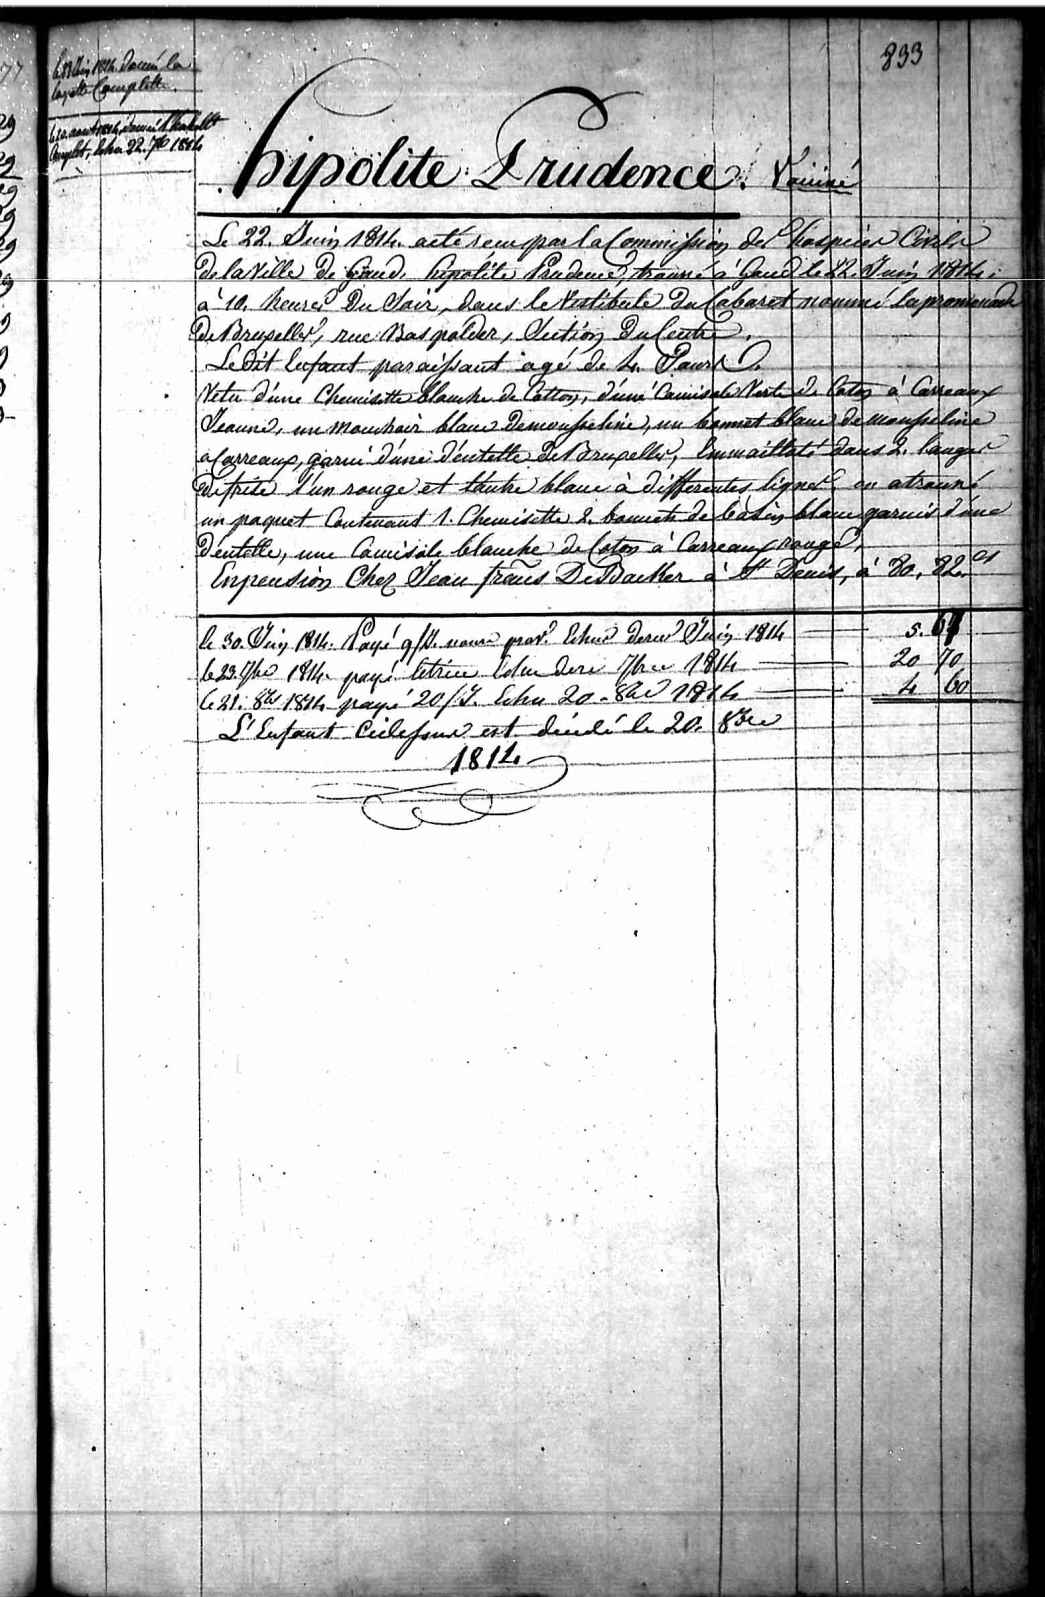 833
le 23 Juin 1814. donné la
layette Complette.
le 20. aout 1814, donné l'habillt
Complet, Echu 22. 7bre 1814
hipolite Prudence. Vacciné
Le 22. Juin 1814. a eté recu par la Commission des hospices Civils
de la Ville de Gand, hipolite Prudence, trouvé à Gand le 22. Juin 1814.
à 10. heures Du Soir, dans le Vestibule du Cabaret nommé la promenade
de Bruxelles, rue Bas polder, Section Du Centre.
Le Dit Enfant paraissant agé de 4. Jours.
Vetu d'une Chemisette blanche de Cotton, d'une Camisole Verte de Coton à Carreaux
Jeaune, un mouchoir blanc De mousseline, un bonnet blanc de mousseline
a Carreaux, garni d'une dentelle de Bruxelles, Emmailloté dans 2. langes
de frise l'un rouge et l'autre blanc à differentes lignes, on a trouvé
un paquet Contenant 1. Chemisette 2. bonnets de basin blanc garnis d'une
dentelle, une Camisole blanche de Coton à Carreaux rouge,
En pension Chez Jean frans De Backer à St Denis, à 80. 82. cs
le 30. Juin 1814. Payé 9/J. Echue Juin 1814 5. 67
le 23. 7bre 1814. payé 7bre 1814 20 70
le 21. 8bre 1814 payé 20/J. Echu 20. 8bre 1814 4 60
L'Enfant est décédé le 20. 8bre
1814